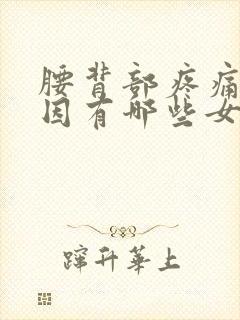 腰背部疼痛
因有哪些女
蹿升华上